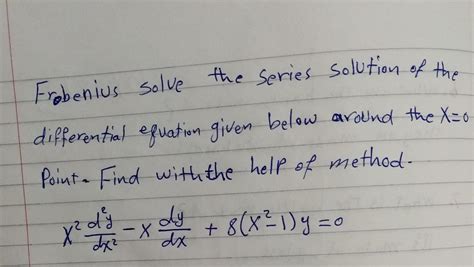 Frobenius solve the series solution of the
differential equation given below around the x=0
Point. Find with the help of method.
x² d²y/dx² - x dy/dx + 8(x²-1)y = 0